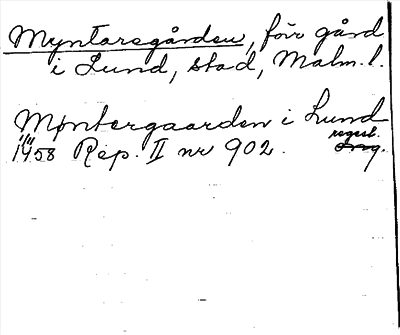 Myntaregården, förr gård
i Lund, stad, Malm. l.
Møntergaarden i Lund
11/11 1458 Rep. II nr 902. regest.